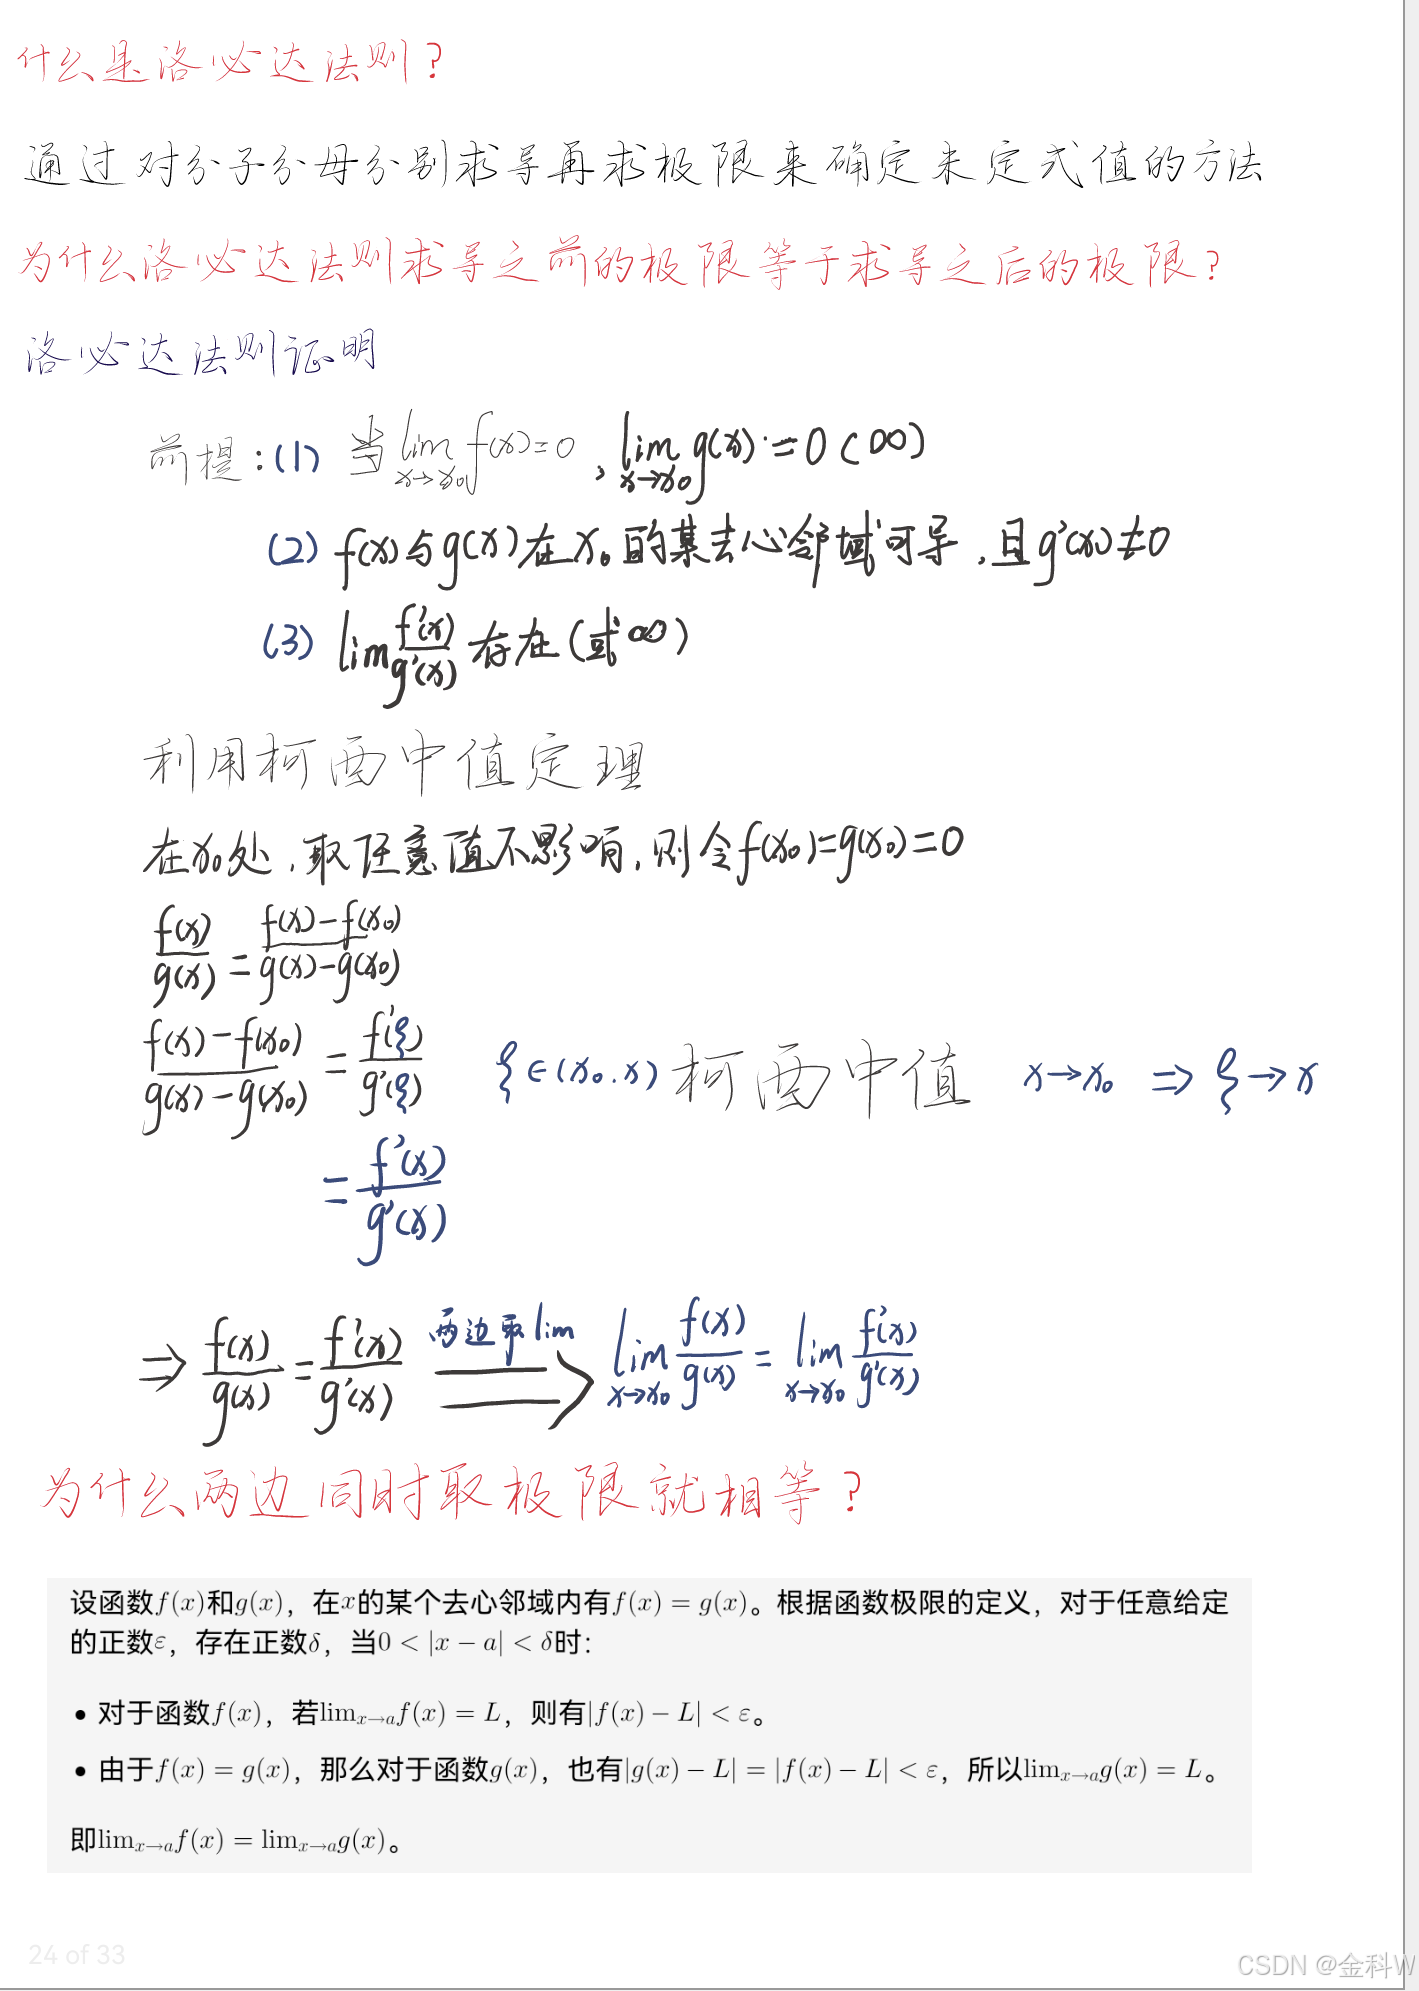 什么是洛必达法则?
通过对分子分母分别求导再求极限来确定未定式值的方法
为什么洛必达法则求导之前的极限等于求导之后的极限?
洛必达法则证明
前提:(1) 当 lim x→x₀ f(x)=0 , lim x→x₀ g(x)=0(∞)
(2) f(x)与g(x)在x₀的某去心邻域可导,且g'(x)≠0
(3) lim f'(x)/g'(x) 存在(或∞)
利用柯西中值定理
在x₀处,取任意值不影响,则令f(x₀)=g(x₀)=0
f(x)/g(x) = f(x)-f(x₀)/g(x)-g(x₀)
f(x)-f(x₀)/g(x)-g(x₀) = f'(ξ)/g'(ξ) ξ∈(x₀.x) 柯西中值 x→x₀ ⇒ ξ→x
= f'(x)/g'(x)
⇒ f(x)/g(x) = f'(x)/g'(x) 两边取lim ⇒ lim x→x₀ f(x)/g(x) = lim x→x₀ f'(x)/g'(x)
为什么两边同时取极限就相等?
设函数f(x)和g(x),在x的某个去心邻域内有f(x) = g(x)。根据函数极限的定义,对于任意给定
的正数ε,存在正数δ,当0 < |x − a| < δ时:
• 对于函数f(x),若limₓ→ₐf(x) = L,则有|f(x) − L| < ε。
• 由于f(x) = g(x),那么对于函数g(x),也有|g(x) − L| = |f(x) − L| < ε,所以limₓ→ₐg(x) = L。
即limₓ→ₐf(x) = limₓ→ₐg(x)。
24 of 33
CSDN @金科W